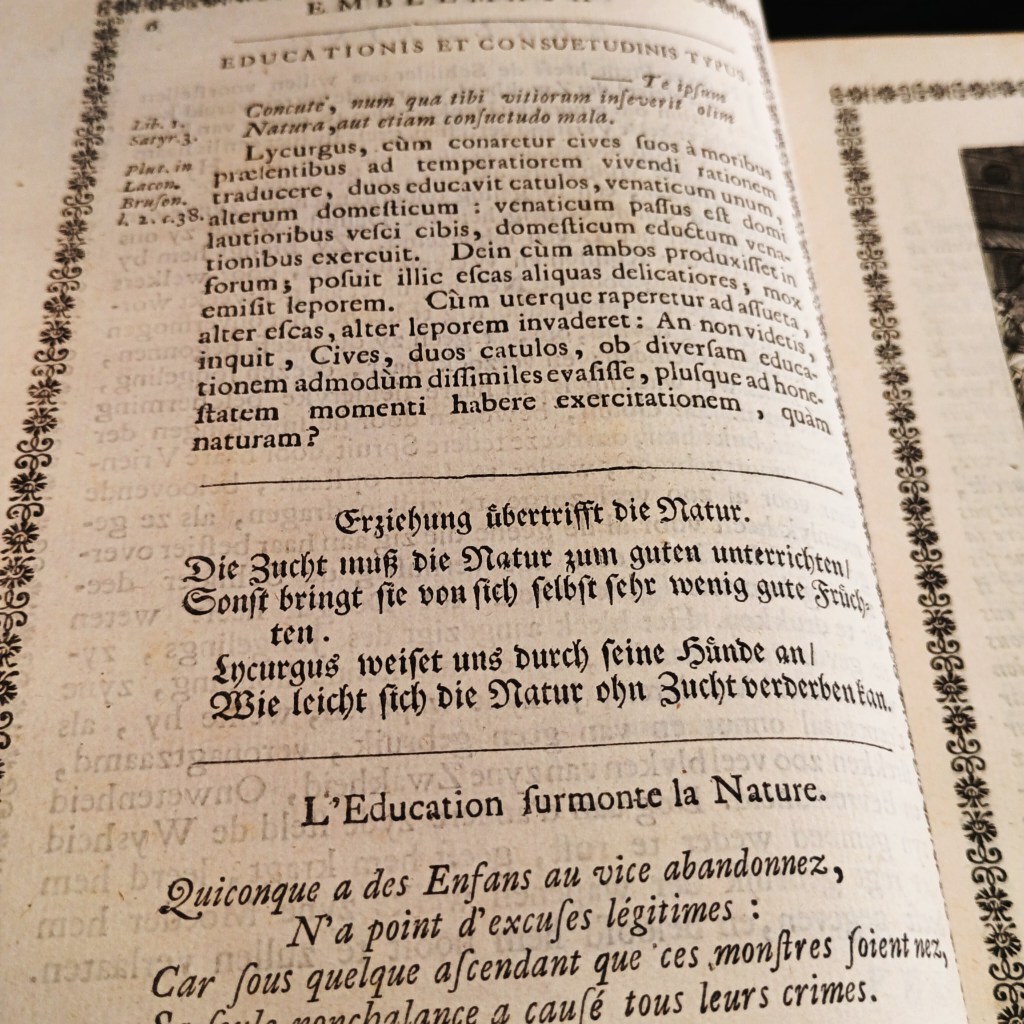 6
EDUCATIONIS ET CONSUETUDINIS TYPUS.
—— Te ipſum
Concute, num qua tibi vitiorum inſeverit olim
Natura, aut etiam conſuetudo mala.
Lib. 1.
Satyr. 3.
Lycurgus, cùm conaretur cives ſuos à moribus
Plut. in
præſentibus ad temperatiorem vivendi rationem
Lacon.
traducere, duos educavit catulos, venaticum unum,
Bruſon.
l. 2. c. 38.
alterum domeſticum : venaticum paſſus eſt domi
lautioribus veſci cibis, domeſticum eductum vena-
tionibus exercuit. Dein cùm ambos produxiſſet in
forum; poſuit illic eſcas aliquas delicatiores, mox
emiſit leporem. Cùm uterque raperetur ad aſſueta,
alter eſcas, alter leporem invaderet: An non videtis,
inquit, Cives, duos catulos, ob diverſam educa-
tionem admodùm diſſimiles evaſiſſe, pluſque ad hone-
ſtatem momenti habere exercitationem, quàm
naturam?
Erziehung uͤbertrifft die Natur.
Die Zucht muß die Natur zum guten unterrichten/
Sonſt bringt ſie von ſich ſelbſt ſehr wenig gute Fruͤch-
ten.
Lycurgus weiſet uns durch ſeine Huͤnde an/
Wie leicht ſich die Natur ohn Zucht verderben kan.
L'Education ſurmonte la Nature.
Quiconque a des Enfans au vice abandonnez,
N'a point d'excuſes légitimes :
Car ſous quelque aſcendant que ces monſtres ſoient nez,
Sa ſeule nonchalance a cauſé tous leurs crimes.